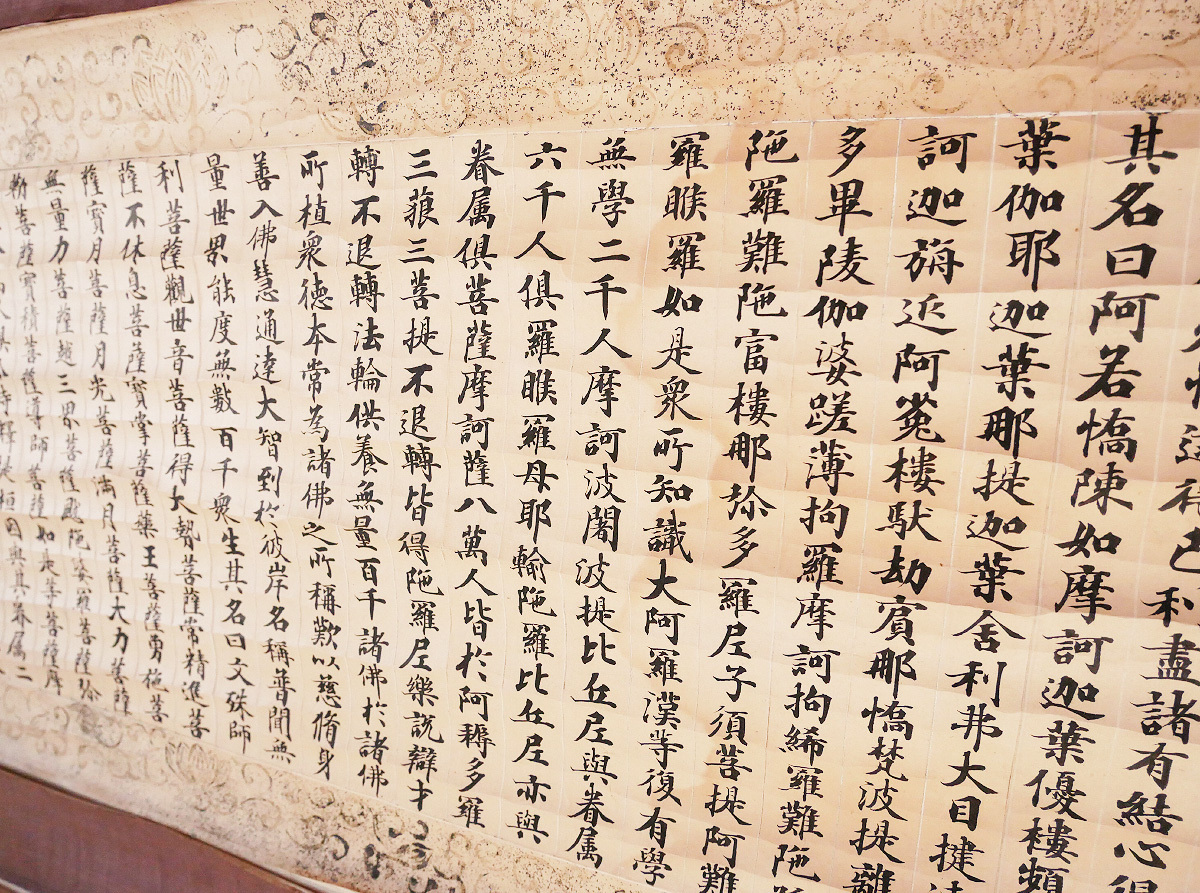 逮得己利盡諸有結心得
其名曰阿若憍陳如摩訶迦葉優樓頻
葉伽耶迦葉那提迦葉舍利弗大目揵
訶迦旃延阿㝹樓馱劫賓那憍梵波提離
多畢陵伽婆蹉薄拘羅摩訶拘絺羅難陁
陁羅難陁富樓那弥多羅尼子須菩提阿難
羅睺羅如是衆所知識大阿羅漢等復有學
無學二千人摩訶波闍波提比丘尼與眷属
六千人俱羅睺羅母耶輸陁羅比丘尼亦與
眷属俱菩薩摩訶薩八萬人皆於阿耨多羅
三藐三菩提不退轉皆得陁羅尼樂說辯才
轉不退轉法輪供養無量百千諸佛於諸佛
所植衆德本常為諸佛之所稱歎以慈脩身
善入佛慧通達大智到於彼岸名稱普聞無
量世界能度無數百千衆生其名曰文殊師
利菩薩觀世音菩薩得大勢菩薩常精進菩
薩不休息菩薩寶掌菩薩藥王菩薩勇施菩
薩寶月菩薩月光菩薩滿月菩薩大力菩薩
無量力菩薩越三界菩薩颰陁婆羅菩薩弥
勒菩薩寶積菩薩導師菩薩如是等菩薩摩
人俱尒時釋提桓因與其眷属二